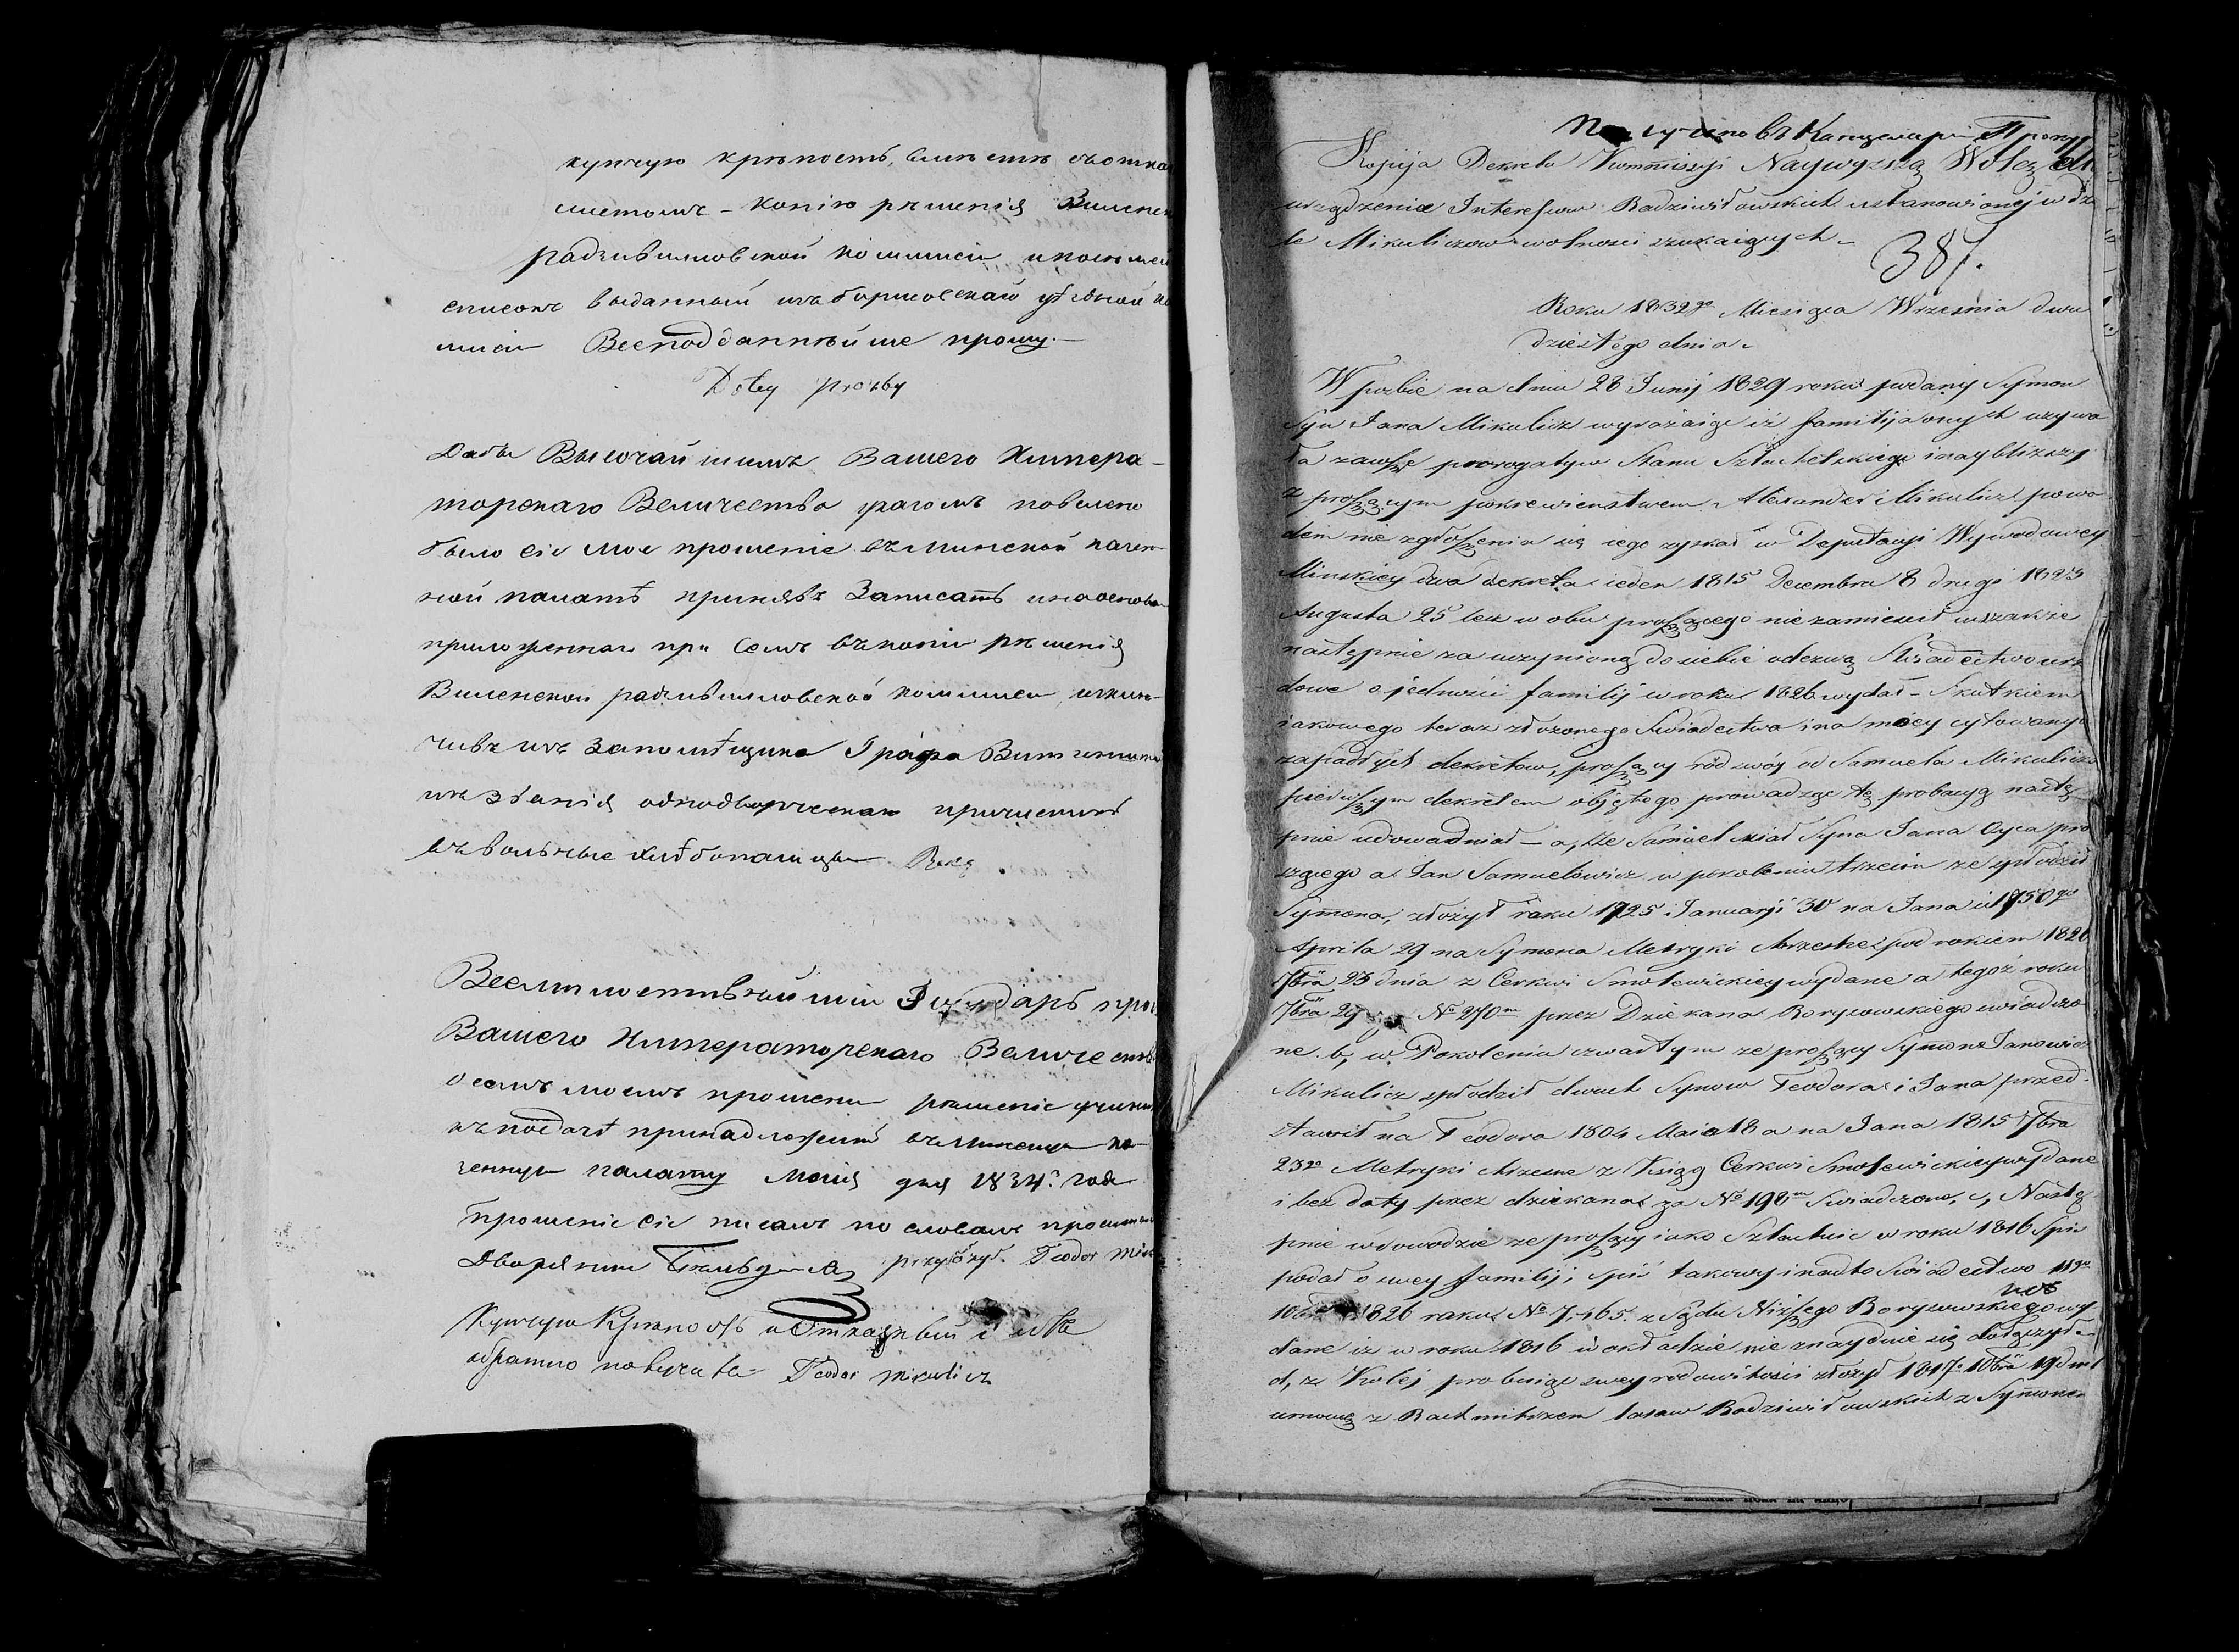 купчую крѣпость, вмѣстѣ съ отка
листомъ - копію рѣшенія Виленск
радзивиловской коммисіи и
списокъ выданный изъ борисовской уѣздной
мисіи Всеподданнѣйше прошу.
Do tey prozby
Дабы Высочайшимъ Вашего Импера-
торскаго Величества указомъ повелено
было сіе мое прошеніе въ минской казен-
ной палатѣ принявъ Записать и на основа
приложеннаго при семъ въ копіи рѣшенія
Виленской радзивиловской коммисіи, исклю-
чивъ изъ за помѣщика Графа Витгенштей
изъ званія однодворческаго причислить
въ вольные хлѣбопашцы
Всемилостивѣйшій Государь прошу
Вашего Императорскаго Величеств
о семъ моемъ прошеніи рѣшеніе учинить
къ подачѣ принадлежитъ въ минскую ка-
зенную палату Маія дня 1834. года
прошеніе сіе писалъ по словамъ просител
Дворянинъ przyłożył Teodor Mik
Купчую Крѣпость и Отказный листъ
обратно получилъ Teodor Mikulicz
Получено въ Канцеляріи Проку
Kopija Dekretu Kommissyi Naywyższą Wolą dla
urządzenia Interessow Radziwiłłowskich ustanowionej w dzie
le Mikuliczow wolnosci szukaiących
381.
Roku 1832go Miesiąca Września dwu
dziestego dnia.
W prozbie na dniu 28 Junij 1829 roku podanÿ Symon
Syn Jana Mikulicz wyrażaiąc iż familija onych używa
ła zawsze prerogatyw Stanu Szlacheckiego i naybliższy
z proszącym pokrewienstwem Alexander Mikulicz powo
dem nie zgłoszenia się iego zyskał w Deputacyi Wywodowey
Minskiey dwa dekreta ieden 1815 Decembra 8 drugi 1823
Augusta 25 lecz w obu proszącego nie zamiescił wszakże
następnie za uczynioną do siebie odezwą Swiadectwo urzę
dowe o jednosci familij w roku 1826 wydał - Skutkiem
iakowego teraz złożonego Swiadectwa i na mocy cytowanych
zapadłych dekretow, proszący ród swój od Samuela Mikulicza
pierwszym dekretem objętego prowadząc tę probacyą nastę
pnie udowadniał - a, że Samuel miał Syna Jana Oyca pro
szącego a Jan Samuelowicz w pokoleniu trzecim że spłodził
Symona, złożył roku 1725 Januarji 30 na Jana i 1750go
Aprila 29 na Symona Metryki chrzestne pod rokiem 1826
7bra 23 dnia z Cerkwi Smolewickiey wydane a tegoż roku
7bra 29 No 270m przez Dziekana Borysowskiego swiadczo
ne. b, w Pokoleniu czwartym że proszący Symon Janowicz
Mikulicz spłodził dwuch Synow Teodora i Jana przed-
stawił na Teodora 1804 Maia 18 a na Jana 1815 7bra
23go Metryki chrzesne z Ksiąg Cerkwi Smolewickiey wydane
i bez daty przez dziekana za No 198m Swiadczone, c, Nastę
pnie w dowodzie że proszący iako Szlachcic w roku 1816 Spis
podał o swey familij, spis takowy i nadto Swiadectwo 11go
1826 roku No 7,465. z Sądu Niższego Borysowskiego wy
dane iż w roku 1816 w okładzie nie znayduie się dołączył.
d, z Kolej probuiąc swey rodowitosci złożył 1817o 10bra 19 dnia
umowę z Rachmistrzem lasow Radziwiłłowskich z Symonem